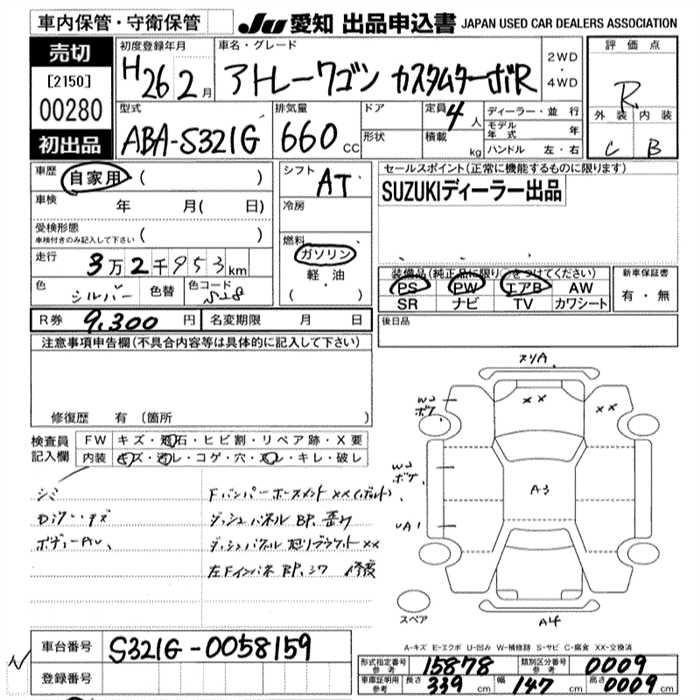 車内保管・守衛保管
JU 愛知 出品申込書 JAPAN USED CAR DEALERS ASSOCIATION
売切
[2150]
00280
初出品
初度登録年月
H26 2月
車名・グレード
アトレーワゴン カスタムターボR
2WD
・
4WD
評価点
R
外装 内装
C B
型式
ABA-S321G
排気量
660 cc
ドア
形状
定員 4人
積載 kg
ディーラー・並行
モデル年式 年
ハンドル 左・右
車歴 自家用 ( )
車検 年 月( 日)
受検形態
車検付きのみ記入して下さい ( )
走行 3万2千953km
色 シルバー 色替 色コード S28
シフト AT
冷房
燃料
ガソリン
軽油
( ・ )
セールスポイント(正常に機能するものに限ります)
SUZUKIディーラー出品
装備品(純正品に限り○をつけてください)
PS PW エアB AW
SR ナビ TV カワシート
新車保証書
有・無
R券 9,300円 名変期限 月 日
後日品
注意事項申告欄(不具合内容等は具体的に記入して下さい)
修復歴 有 (箇所 )
検査員記入欄
FW キズ・飛石・ヒビ割・リペア跡・X要
内装 キズ・汚レ・コゲ・穴・スレ・キレ・破レ
シミ
ボディー
FバンパーホースメントXX(ボルト)
ダッシュパネルBP
ダッシュパネル XX
左Fインパネ BP
A
W2
XX
XX
W2
A3
UA1
A4
スペア
A-キズ E-エクボ U-凹み W-補修跡 S-サビ C-腐食 XX-交換済
車台番号 S321G-0058159
登録番号
形式指定番号 参考 15878 類別区分番号 参考 0009
車庫証明用 参考 長さ 339cm 幅 147cm 高さ 0009cm